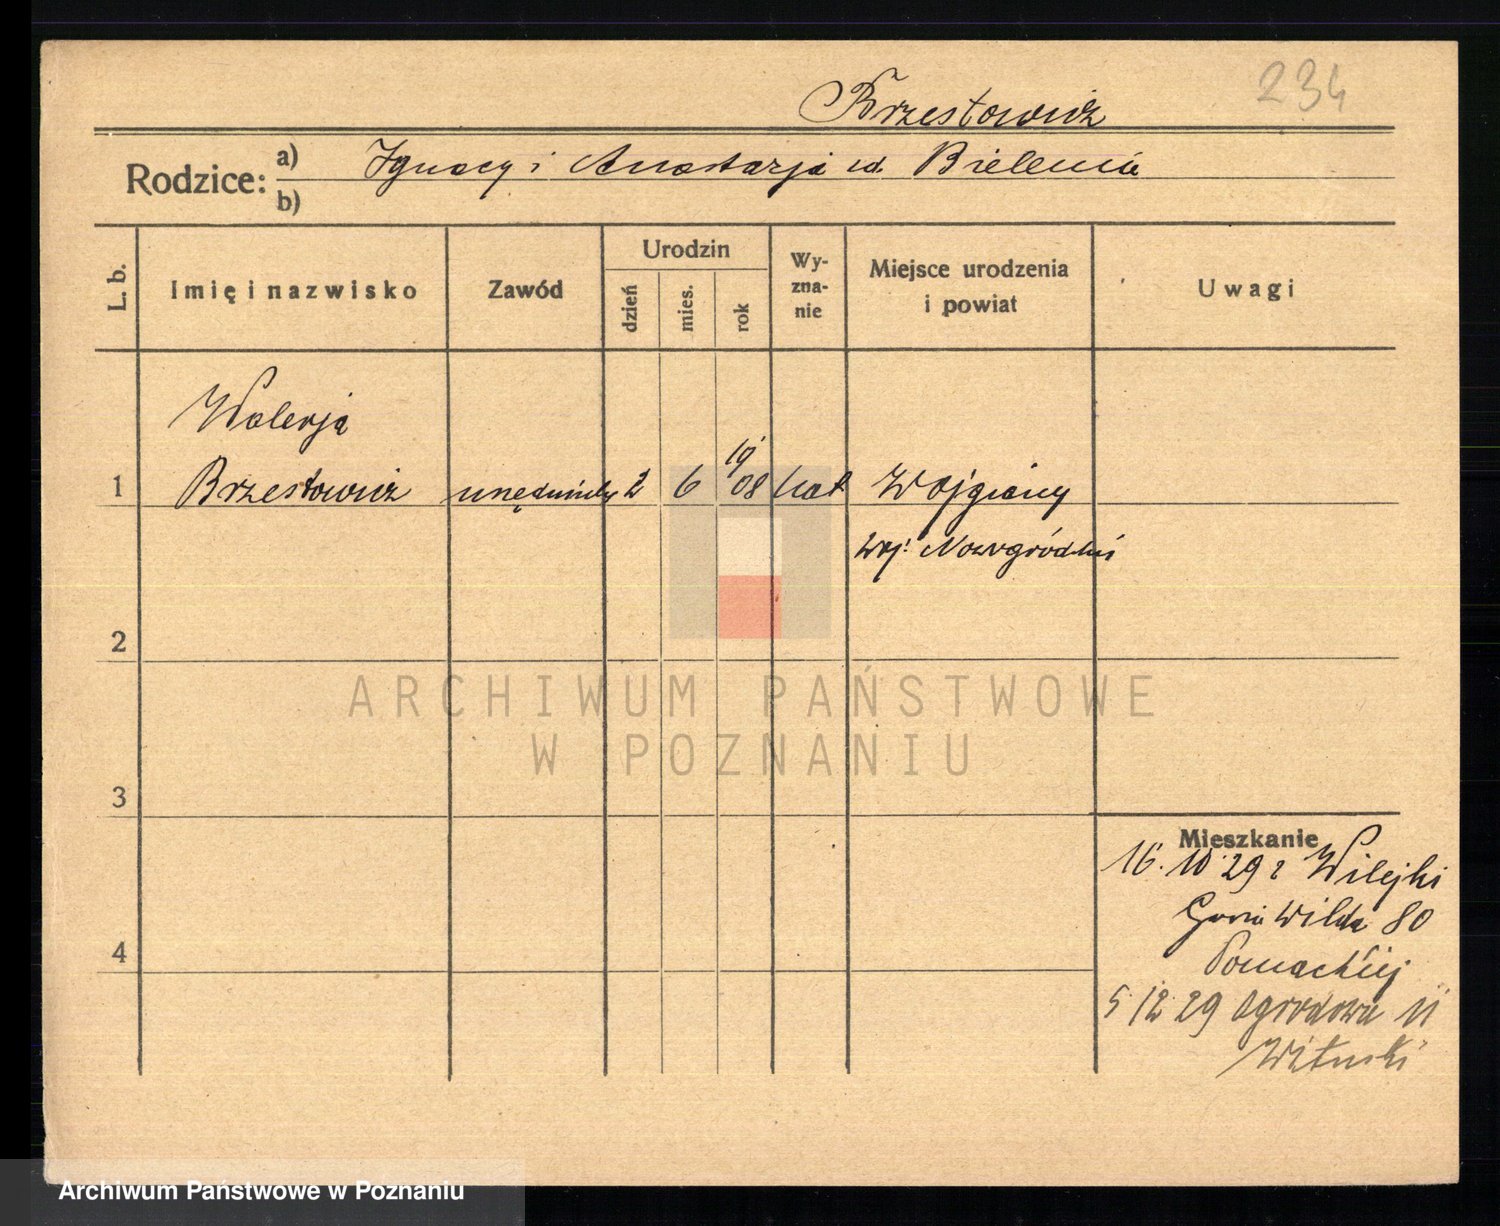 234
Brzestowicz
Rodzice:
a) Ignacy i Anastazja ur.
b)
L. b.
Imię i nazwisko
Zawód
Urodzin
dzień
mies.
rok
Wy-
zna-
nie
Miejsce urodzenia
i powiat
Uwagi
Walerja
1 Brzestowicz 2 6 1908 kat
woj. Nowogródzki
2
3
4
Mieszkanie
16. 10 29 z Wilejki
Górna Wilda 80
5 12 29 Ogrodowa 11
ARCHIWUM PAŃSTWOWE
W POZNANIU
Archiwum Państwowe w Poznaniu